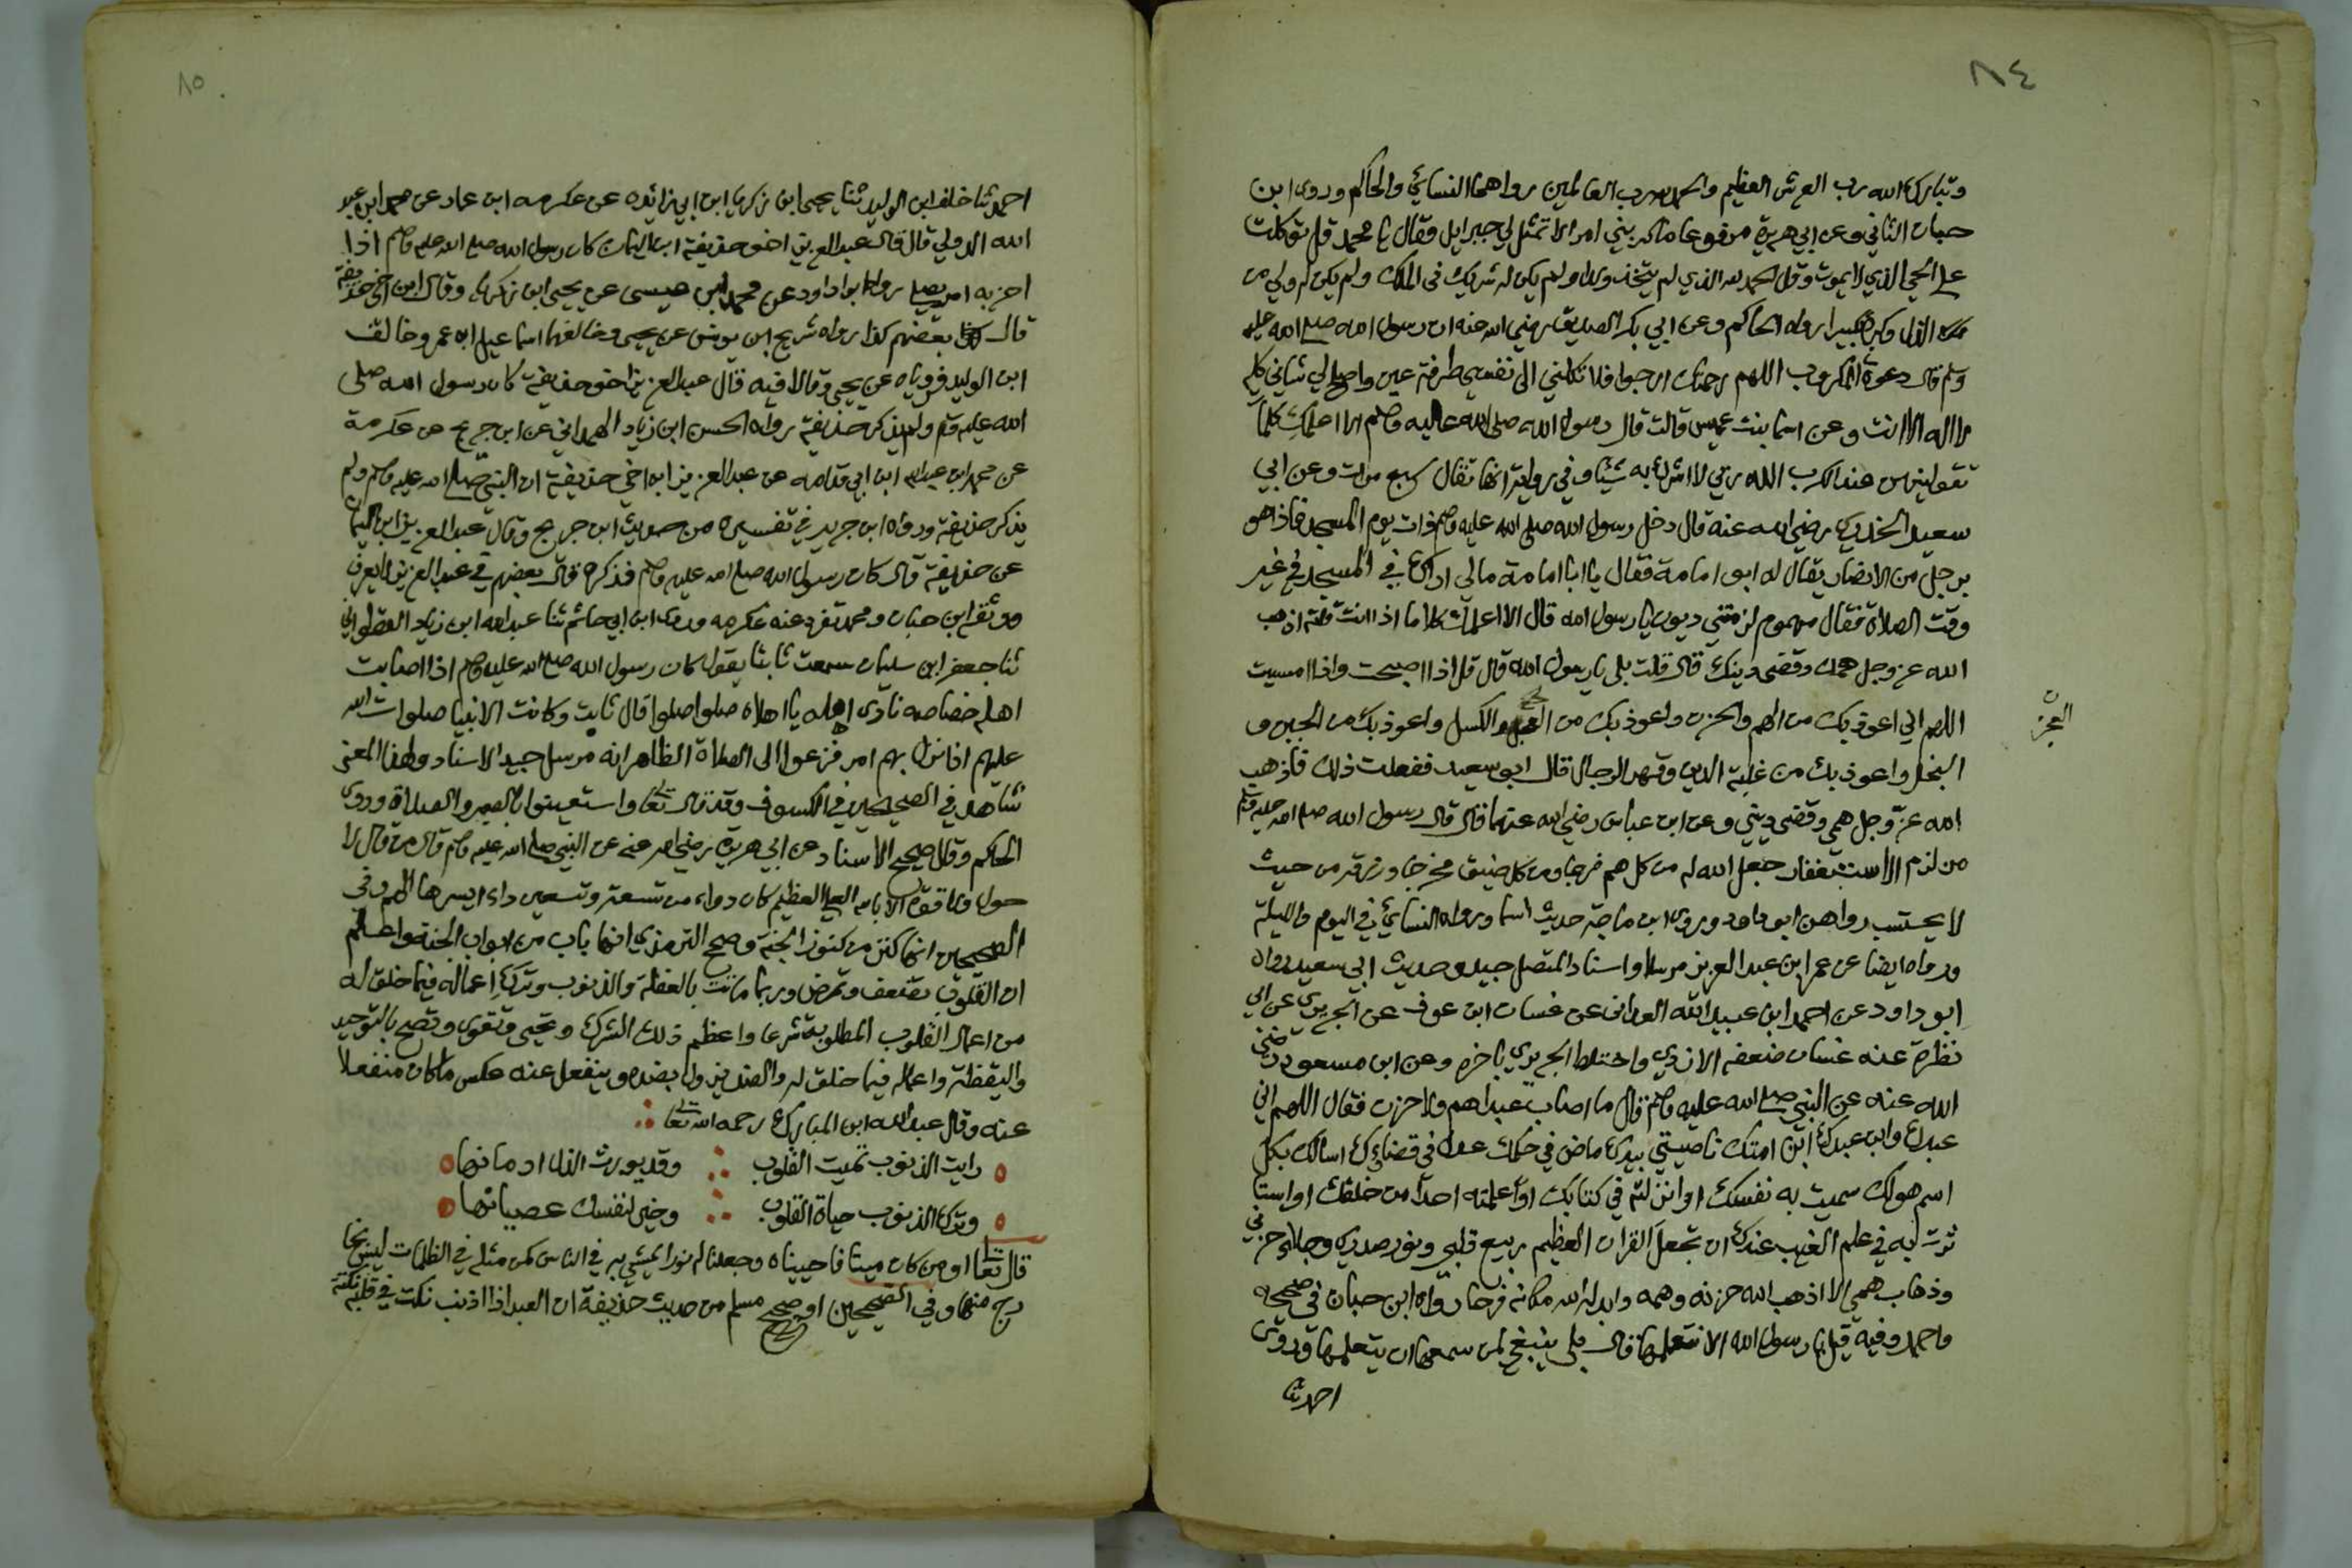 ٨٤
وتبارك الله رب العرش العظيم والحمد لله رب العالمين رواهما النسائي والحاكم وروى ابن
حبان الثاني وعن ابي هريرة مرفوعا ما كربني امر الا تمثل لي جبرايل فقال يا محمد قل توكلت
على الحي الذي لا يموت وقل الحمد لله الذي لم يتخذ ولدا ولم يكن له شريك في الملك ولم يكن له ولي من
الذل وكبره تكبيرا رواه الحاكم وعن ابي بكر الصديق رضي الله عنه ان رسول الله صلى الله عليه
وسلم قال دعوة المكروب اللهم رحمتك ارجوا فلا تكلني الى نفسي طرفة عين واصلح لي شاني كله
لا اله الا انت وعن اسما بنت عميس قالت قال رسول الله صلى الله عليه وصلم الا اعلمك كلمات
تقولينهن عند الكرب الله ربي لا اشرك به شيئا وفي رواية انها تقال سبع مرات وعن ابي
سعيد الخدري رضي الله عنه قال دخل رسول الله صلى الله عليه وصلم ذات يوم المسجد فاذا هو
برجل من الانصار يقال له ابو امامة فقال يا ابا امامة مالي اراك في المسجد في غير
وقت الصلاة فقال هموم لزمتني وديون يا رسول الله قال الا اعلمك كلاما اذا انت قلته اذهب
الله عز وجل همك وقضى دينك قال قلت بلى يا رسول الله قال قل اذا اصبحت واذا امسيت
اللهم اني اعوذ بك من الهم والحزن واعوذ بك من العجز والكسل واعوذ بك من الجبن و
العجز
البخل واعوذ بك من غلبة الدين وقهر الرجال قال ابو سعيد ففعلت ذلك فاذهب
الله عز وجل همي وقضى ديني وعن ابن عباس رضي الله عنهما قال قال رسول الله صلى الله عليه وسلم
من لزم الاستغفار جعل الله له من كل هم فرجا ومن كل ضيق مخرجا ورزقه من حيث
لا يحتسب رواهن ابو داود وروى ابن ماجة حديث اسما ورواه النسائي في اليوم والليلة
ورواه ايضا عن عمر ابن عبد العزيز مرسلا واسناد المتصل جيد وحديث ابي سعيد رواه
ابو داود عن احمد ابن عبيد الله الغداني عن غسان ابن عوف عن الجريري عن ابي
نظرة عنه غسان ضعفه الازدي واختلط الجريري باخره وعن ابن مسعود رضي
الله عنه عن النبي صلى الله عليه وصلم قال ما اصاب عبدا هم ولا حزن فقال اللهم اني
عبدك وابن عبدك ابن امتك ناصيتي بيدك ماض في حكمك عدل في قضاؤك اسالك بكل
اسم هو لك سميت به نفسك او انزلته في كتابك او علمته احدا من خلقك او استا
ثرت به في علم الغيب عندك ان تجعل القران العظيم ربيع قلبي ونور صدري وجلاء حزني
وذهاب همي الا اذهب الله حزنه وهمه وابدله الله مكانه فرحا رواه ابن حبان في صحيحه
واحمد وفيه قيل يا رسول الله الا نتعلمها قال بلى ينبغي لمن سمعها ان يتعلمها وروى
احمد ثنا
٨٥
احمد ثنا خلف ابن الوليد ثنا يحيى ابن زكريا ابن ابي زائده عن عكرمه ابن عمار عن محمد ابن عبد
الله الدولي قال قال عبد العزيز اخو حذيفة ابن اليمان كان رسول الله صلى الله عليه وصلم اذا
احزبه امر يصلي رواه ابو داود عن محمد ابن عيسى عن يحيى ابن زكريا وقال ابن اخي حذيفة
قال بعضهم كذا رواه شريح ابن يونس عن يحيى وخالفهما اسماعيل ابن عمر وخالف
ابن الوليد فروياه عن يحيى وقالا فيه قال عبد العزيز اخو حذيفة كان رسول الله صلى
الله عليه وسلم ولم يذكر حذيفة رواه الحسن ابن زياد الهمداني عن ابن جريج عن عكرمة
عن محمد ابن عبد الله ابن ابي قدامه عن عبد العزيز ابن اخي حذيفة ان النبي صلى الله عليه وصلم ولم
يذكر حذيفة ورواه ابن جرير في تفسيره من حديث ابن جريج وقال عبد العزيز ابن اليمان
عن حذيفة قال كان رسول الله صلى الله عليه وصلم فذكره قال بعضهم في عبد العزيز لا يعرف
ووثقه ابن حبان ومحمد تفرد عنه عكرمه وروى ابن ابي حاتم ثنا عبد الله ابن زياد القطواني
ثنا جعفر ابن سليمان سمعت ثابثا يقول كان رسول الله صلى الله عليه وصلم اذا اصابت
اهله خصاصه نادى اهله يا اهلاه صلوا صلوا قال ثابت وكانت الانبيا صلوات الله
عليهم اذا نزل بهم امر فزعوا الى الصلاة الظاهر انه مرسل جيد الاسناد ولهذا المعنى
شاهد في الصحيحين في الكسوف وقد قال تعالى واستعينوا بالصبر والصلاة وروى
الحاكم وقال صحيح الاسناد عن ابي هريرة رضي الله عنه عن النبي صلى الله عليه وصلم قال من قال لا
حول ولا قوة الا بالله العلي العظيم كان دواء من تسعة وتسعين داء ايسرها الهم وفي
الصحيحين انها كنز من كنوز الجنة وصحح الترمذي انها باب من ابواب الجنة واعلم
ان القلوب تضعف وتمرض وربما ماتت بالغفلة والذنوب وترك اعماله فيما خلق له
من اعمال القلوب المطلوبة شرعا واعظم ذلك الشرك وتحيى وتقوى وتصح بالتوحيد
واليقظة واعماله فيما خلق له والضد يزول بضده وينفعل عنه عكس ما كان منفعلا
عنه وقال عبد الله ابن المبارك رحمه الله تعالى
رايت الذنوب تميت القلوب وقد يورث الذل ادمانها
وترك الذنوب حياة القلوب وخير لنفسك عصيانها
قال تعالى او من كان ميتا فاحييناه وجعلنا له نورا يمشي به في الناس كمن مثله في الظلمات ليس بخا
رج منها وفي الصحيحين او صحيح مسلم من حديث حذيفة ان العبد اذا اذنب نكت في قلبه نكتة